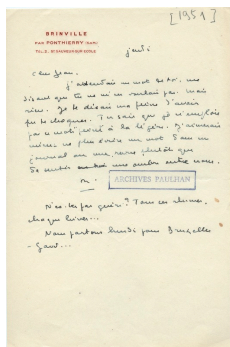 [1951]
BRINVILLE
PAR PONTHIERRY (S&M)
TÉL. 2. ST SAUVEUR-SUR-ECOLE
jeudi
cher Jean.
J'attendais un mot de toi, me
disant que tu ne m'en voulais pas. mais
rien. Je te disais ma peine d'avoir
pu te choquer. Tu sais que je n'emplois
pas ce mot à la légère. J'aimerais
mieux ne plus écrire un mot dans un
journal ou une revue plutôt que
de sentir une ombre entre nous.
M.
ARCHIVES PAULHAN
N'es-tu pas guéri? Tous ces rhumes,
chaque hiver...
Nous partons lundi pour Bruxelles
- Gand...